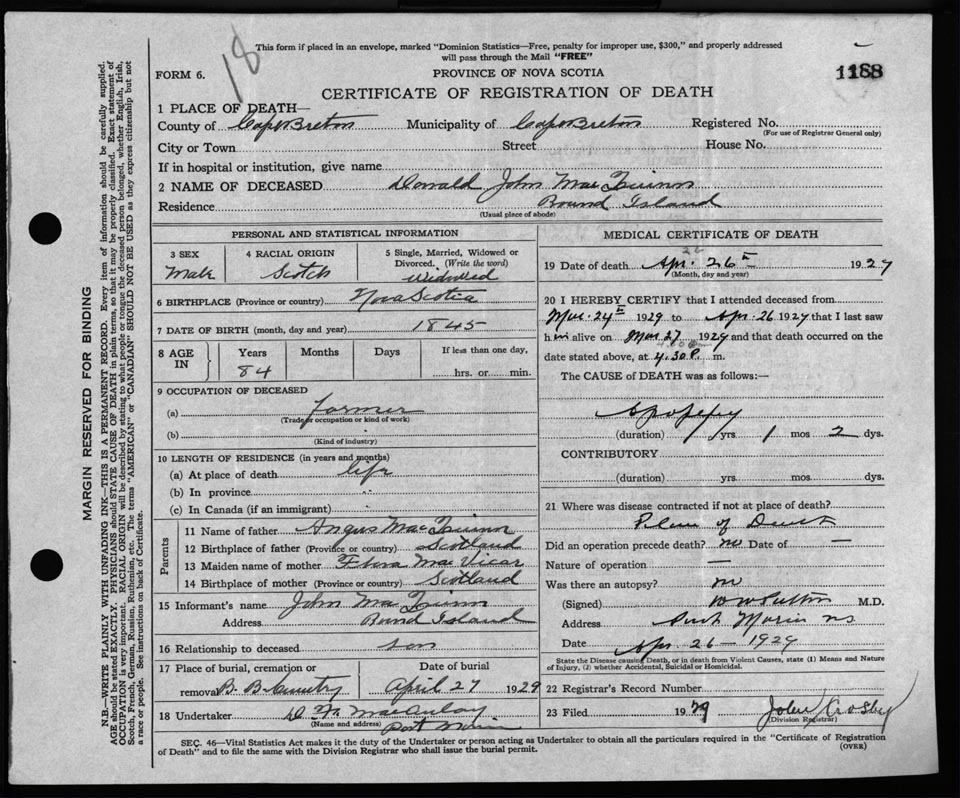 18
This form if placed in an envelope, marked "Dominion Statistics—Free, penalty for improper use, $300," and properly addressed
will pass through the Mail "FREE"
1188
FORM 6.
PROVINCE OF NOVA SCOTIA
CERTIFICATE OF REGISTRATION OF DEATH
1 PLACE OF DEATH—
County of Cape Breton Municipality of Cape Breton Registered No.
(For use of Registrar General only)
City or Town Street House No.
If in hospital or institution, give name
2 NAME OF DECEASED Donald John Mac Quinn
Residence Round Island
(Usual place of abode)
PERSONAL AND STATISTICAL INFORMATION
3 SEX
Male
4 RACIAL ORIGIN
Scotch
5 Single, Married, Widowed or
Divorced. (Write the word)
widowed
6 BIRTHPLACE (Province or country) Nova Scotia
7 DATE OF BIRTH (month, day and year) 1845
8 AGE
IN
Years
84
Months
Days
If less than one day,
hrs. or min.
9 OCCUPATION OF DECEASED
(a) Farmer
(Trade or occupation or kind of work)
(b)
(Kind of industry)
10 LENGTH OF RESIDENCE (in years and months)
(a) At place of death life
(b) In province "
(c) In Canada (if an immigrant)
Parents
11 Name of father Angus Mac Quinn
12 Birthplace of father (Province or country) Scotland
13 Maiden name of mother Flora Mac Vicar
14 Birthplace of mother (Province or country) Scotland
15 Informant's name John Mac Quinn
Address Round Island
16 Relationship to deceased son
17 Place of burial, cremation or
removal B. B. Cemetry
Date of burial
April 27 1929
18 Undertaker D. F. MacAulay
(Name and address) Port Morien
MEDICAL CERTIFICATE OF DEATH
26
19 Date of death Apr. 26th 1929
(Month, day and year)
20 I HEREBY CERTIFY that I attended deceased from
Mar. 24th 1929 to Apr. 26 1929 that I last saw
him alive on Mar 27 1929 and that death occurred on the
date stated above, at 4.30 P. m.
The CAUSE of DEATH was as follows:—
Apoplexy
(duration) yrs 1 mos 2 dys.
CONTRIBUTORY
(duration) yrs. mos dys.
21 Where was disease contracted if not at place of death?
Place of Death
Did an operation precede death? no Date of —
Nature of operation —
Was there an autopsy? no
(Signed) M.D.
Address Port Morien NS
Date Apr. 26 — 1929
State the Disease causing Death, or in death from Violent Causes, state (1) Means and Nature
of Injury, (2) whether Accidental, Suicidal or Homicidal.
22 Registrar's Record Number
23 Filed 1929 John Crosby
(Division Registrar)
SEC. 46—Vital Statistics Act makes it the duty of the Undertaker or person acting as Undertaker to obtain all the particulars required in the "Certificate of Registration
of Death" and to file the same with the Division Registrar who shall issue the burial permit.
(OVER)
MARGIN RESERVED FOR BINDING
N.B.—WRITE PLAINLY WITH UNFADING INK—THIS IS A PERMANENT RECORD. Every item of information should be carefully supplied.
AGE should be stated EXACTLY. PHYSICIANS should STATE CAUSE OF DEATH in plain terms, so that it may be properly classified. Exact statement of
OCCUPATION is very important. RACIAL ORIGIN will be described by stating to what people or tongue the deceased person belonged, whether English, Irish,
Scotch, French, German, Russian, Ruthenian, etc. The terms "AMERICAN" or "CANADIAN" SHOULD NOT BE USED as they express citizenship but not
a race or people. See instructions on back of Certificate.